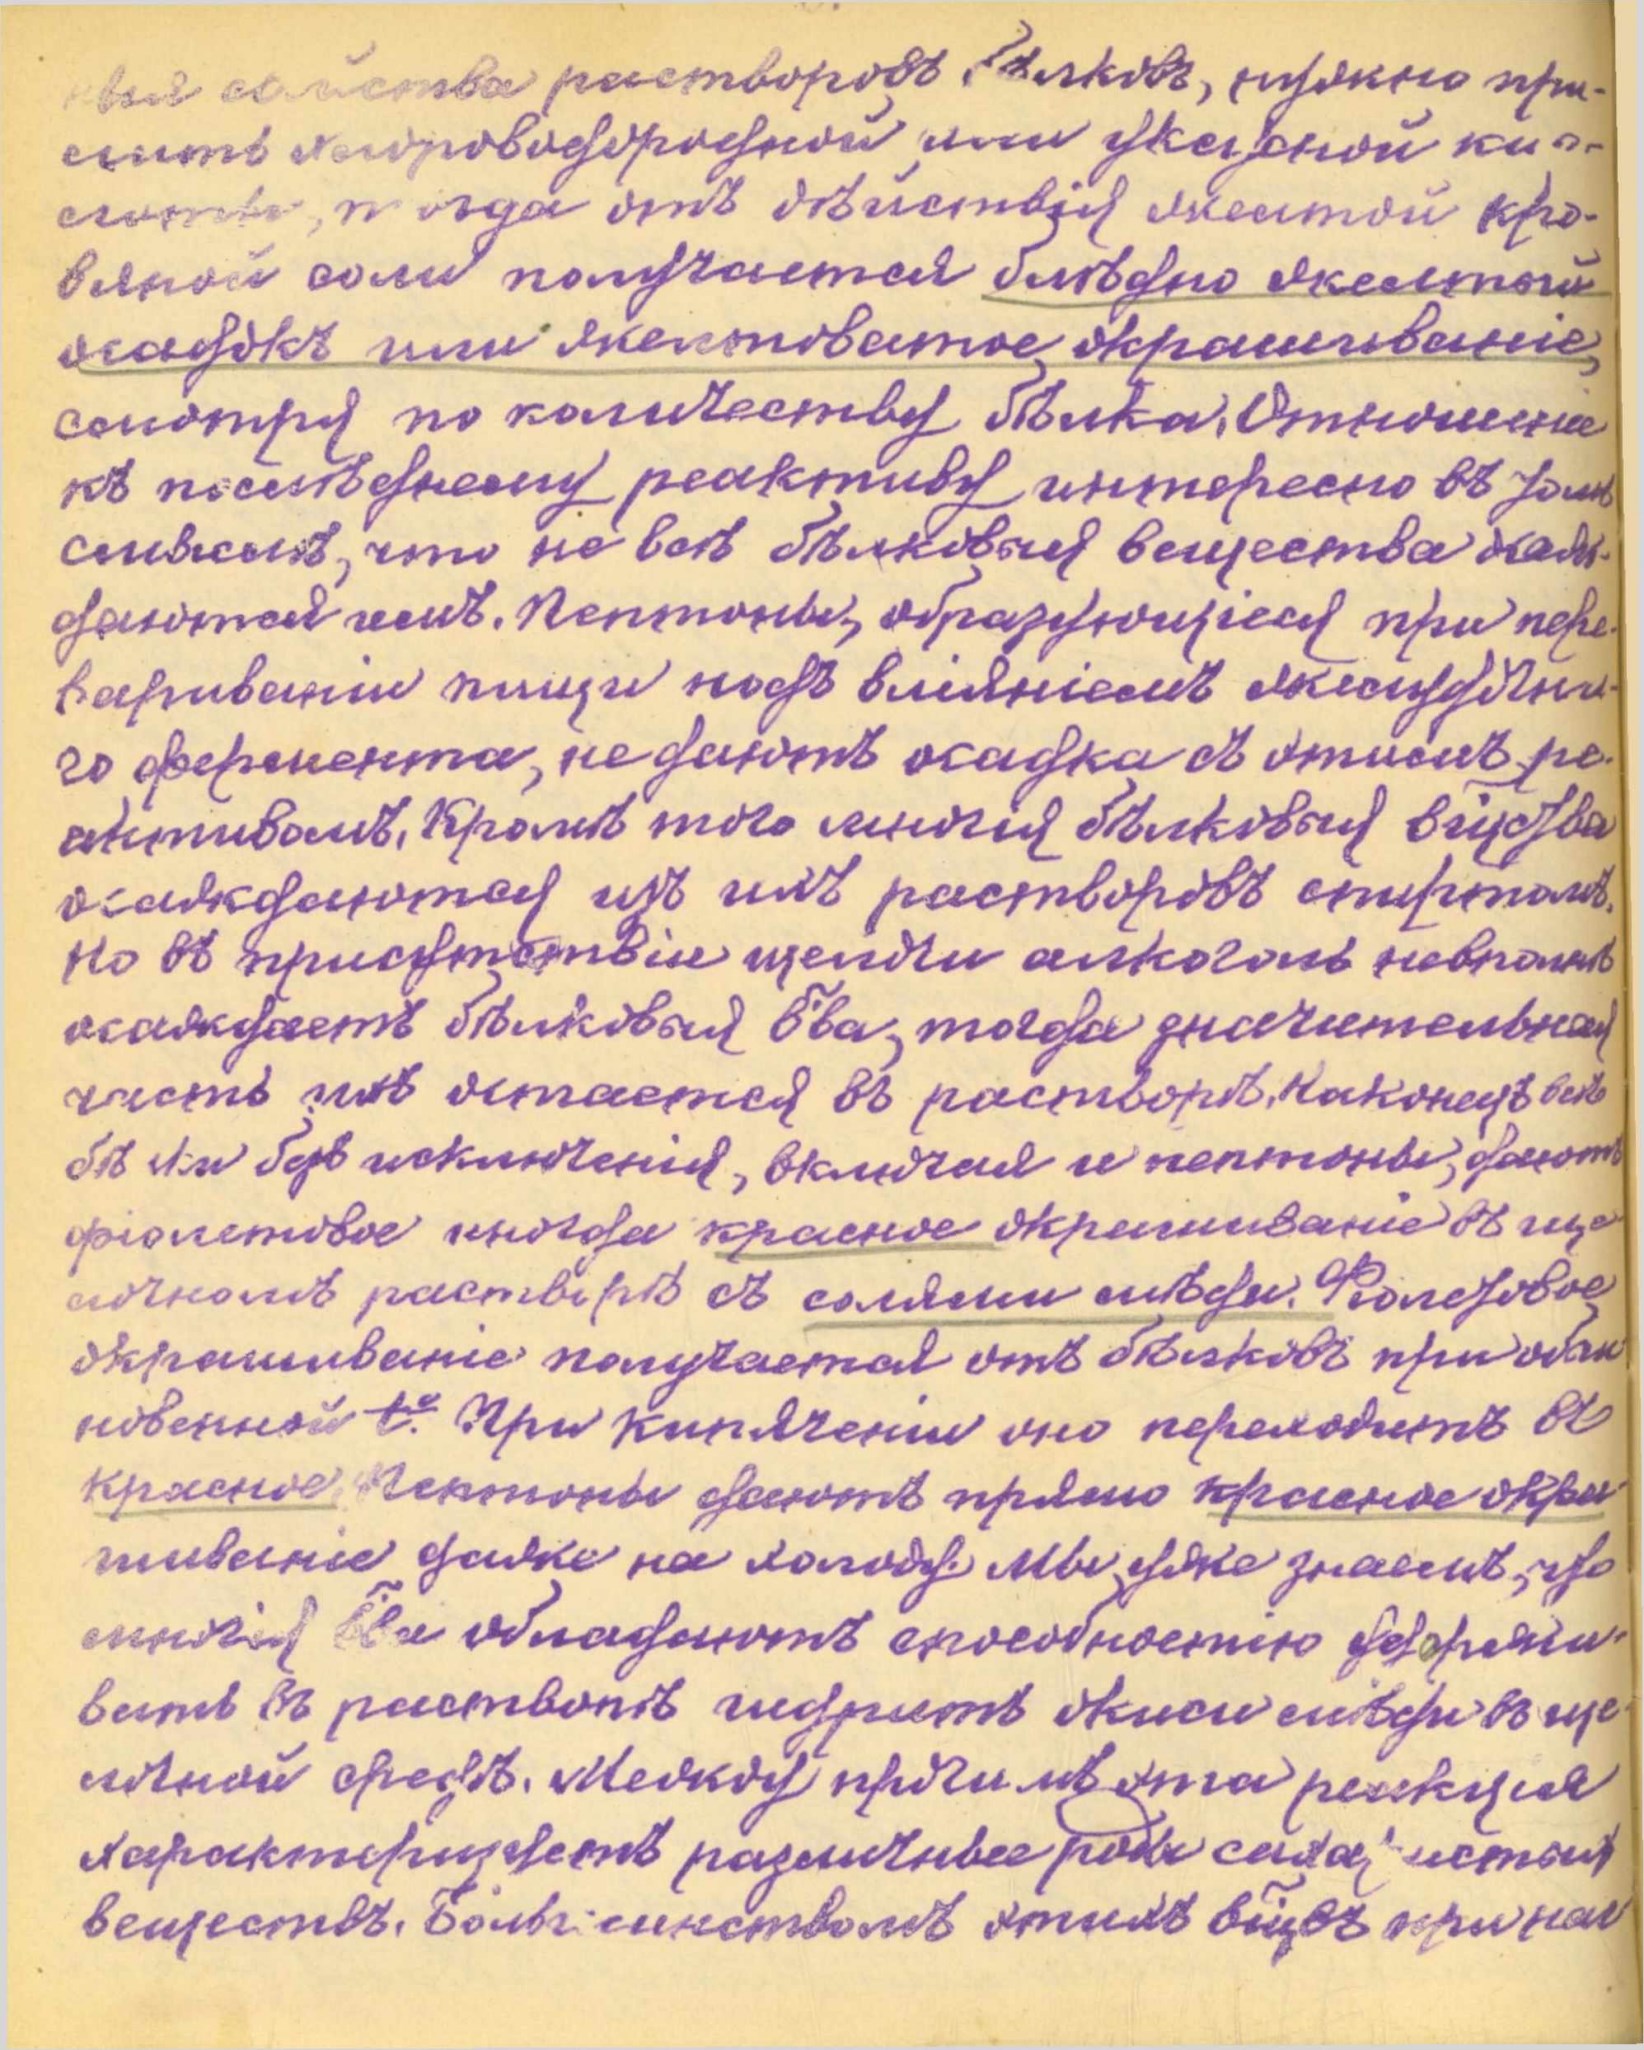 свойства растворовъ бѣлковъ, нужно при-
лить хлороводородной или уксусной ки-
слоты, тогда отъ дѣйствія желтой кро-
вяной соли получается блѣдно желтый
осадокъ или желтоватое окрашиваніе,
смотря по количеству бѣлка. Отношеніе
къ послѣднему реактиву интересно въ томъ
смыслѣ, что не всѣ бѣлковыя вещества осаж-
даются имъ. Пептоны, образующіеся при пере-
вариваніи пищи подъ вліяніемъ желудочна-
го фермента, не даютъ осадка съ этимъ ре-
активомъ. Кромѣ того многія бѣлковыя вещства
осаждаются изъ ихъ растворовъ спиртомъ.
Но въ присутствіи щелочи алкоголь невполнѣ
осаждаетъ бѣлковыя в̃ва, тогда значительная
часть ихъ остается въ растворѣ. Наконецъ всѣ
бѣлки безъ исключенія, включая и пептоны, даютъ
фіолетовое иногда красное окрашиваніе въ ще
лочномъ растворѣ съ солями мѣди. Фіолетовое
окрашиваніе получается отъ бѣлковъ при обык
новенной tº. При кипяченіи оно переходитъ въ
красное. Пептоны даютъ прямо красное окра-
шиваніе даже на холоду. Мы уже знаемъ, что
многія в̃ва обладаютъ способностію удержи-
вать въ растворѣ гидратъ окиси мѣди въ ще-
лочной средѣ. Между прочимъ эта реакція
характеризуетъ различные роды сахаристыхъ
веществъ. Большинствомъ этихъ в̃щвъ при наг